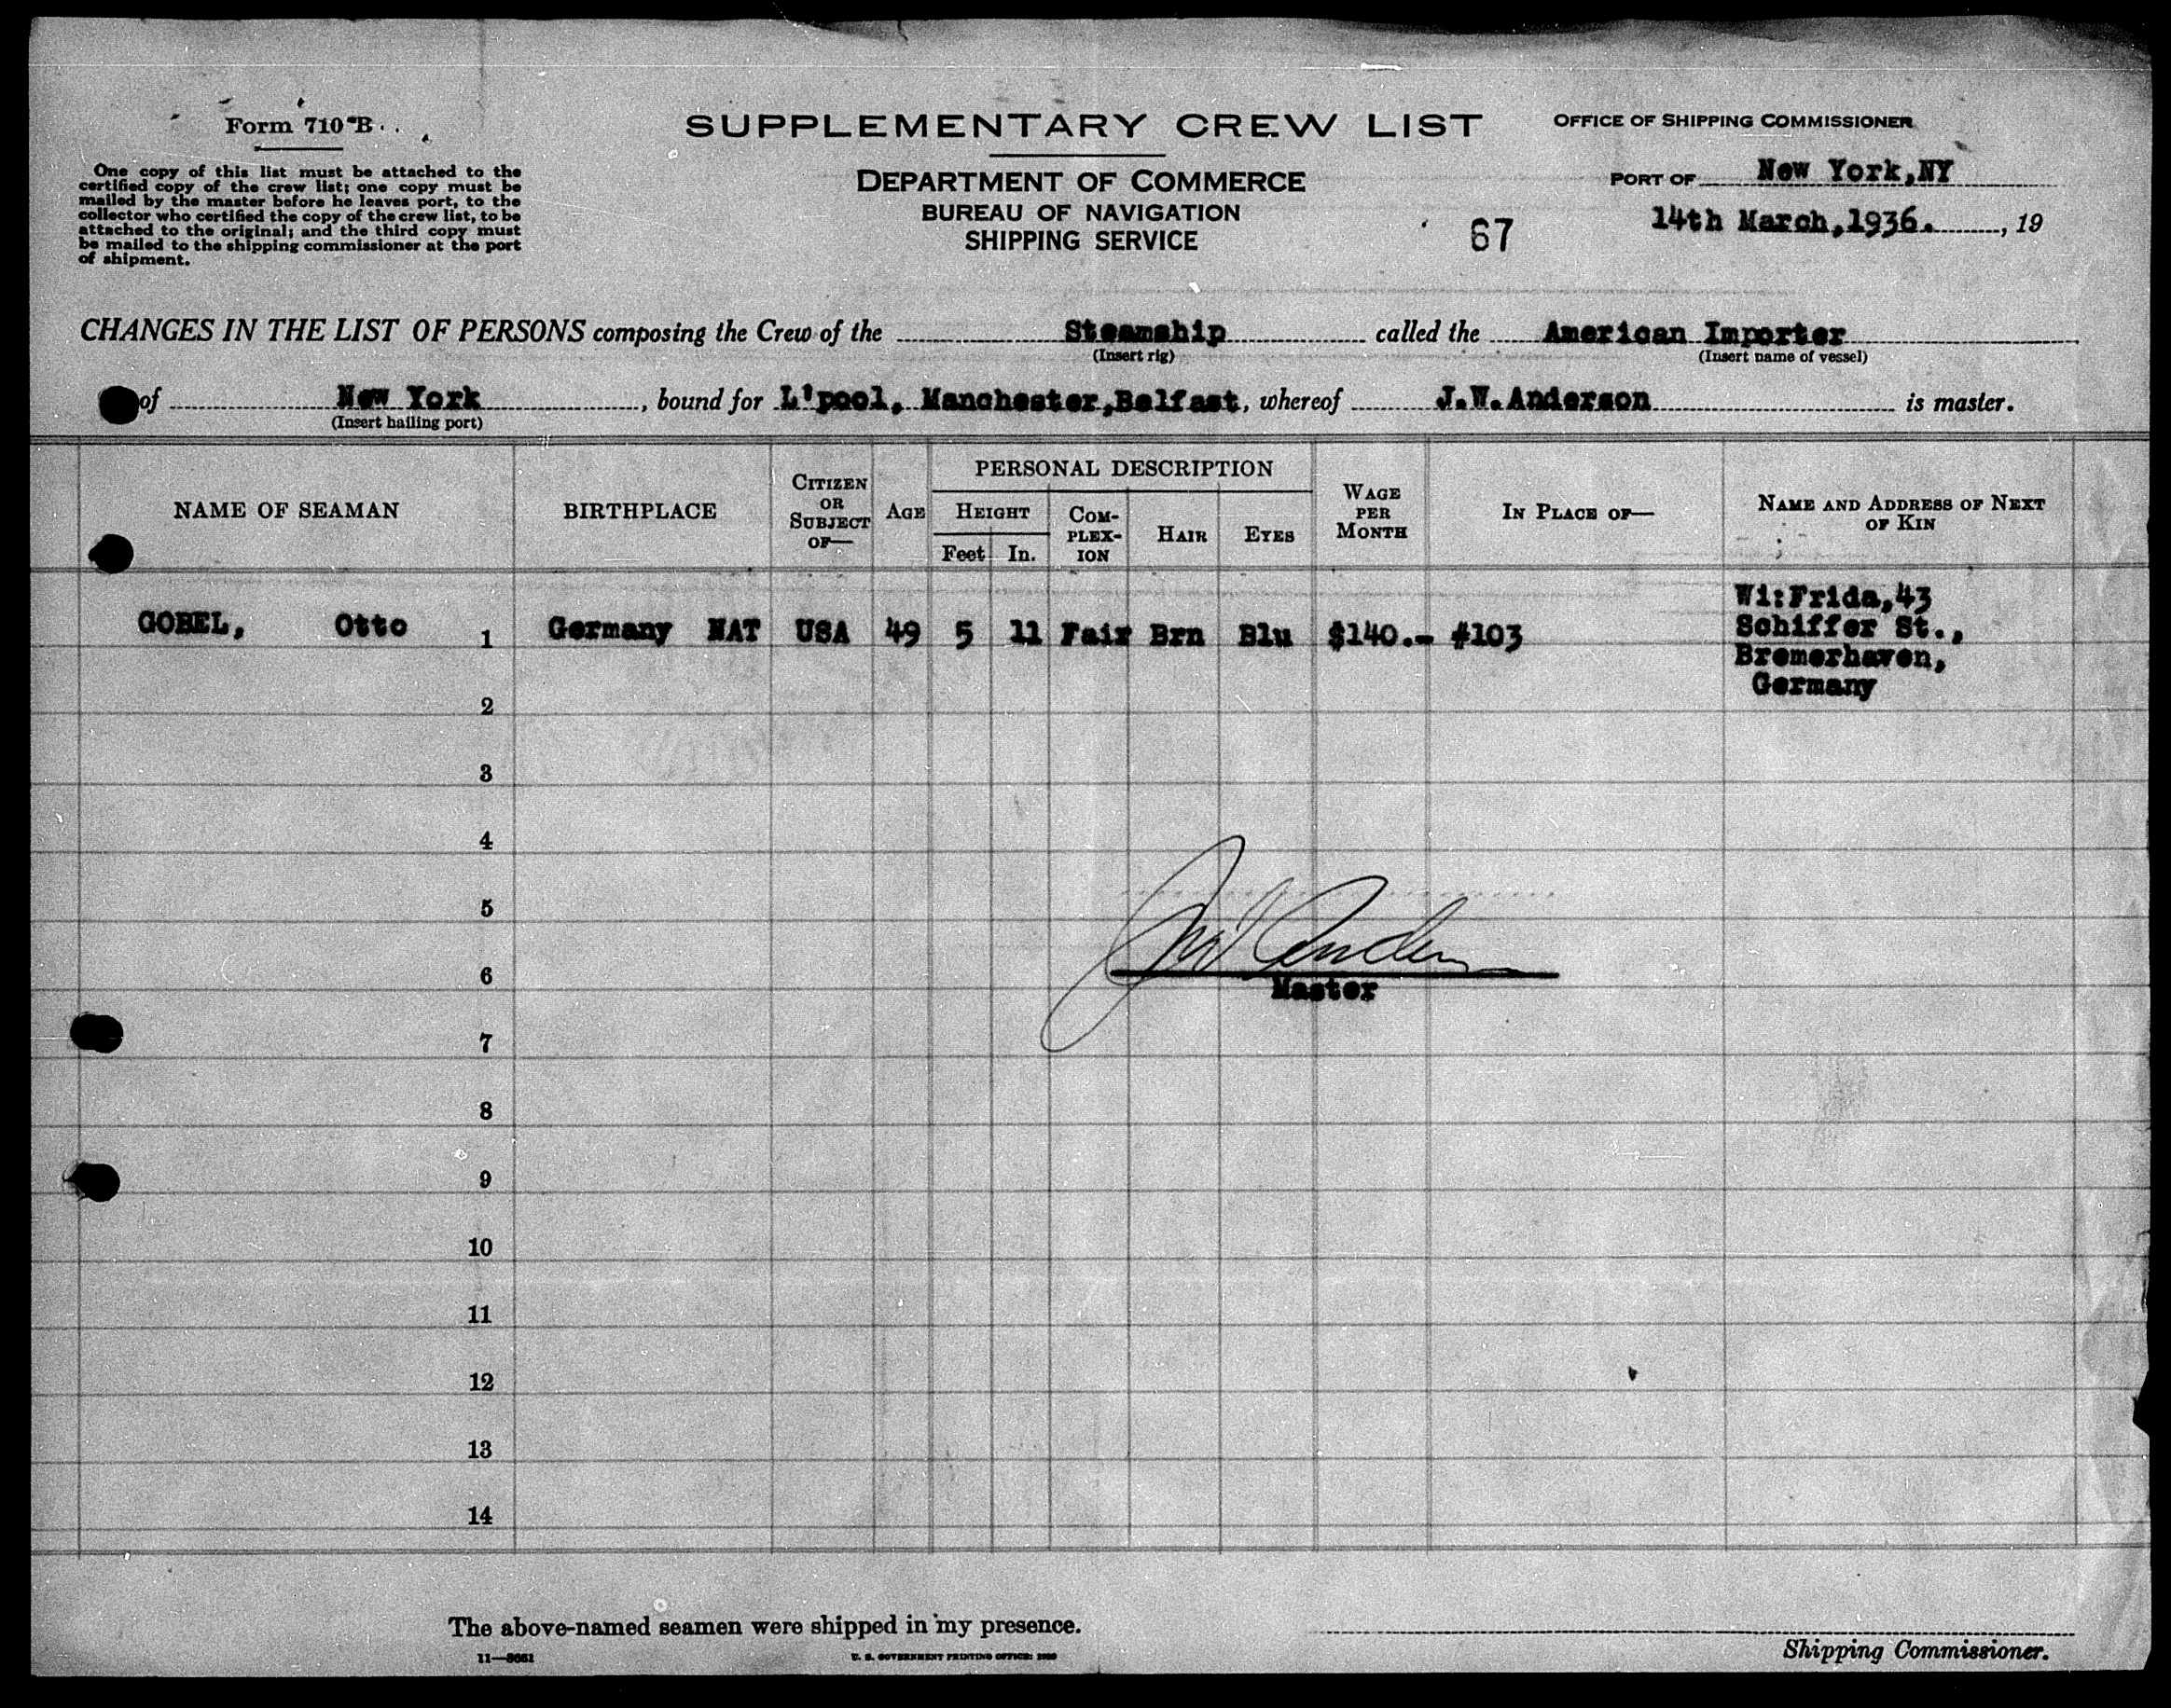 Form 710-B
SUPPLEMENTARY CREW LIST
OFFICE OF SHIPPING COMMISSIONER
One copy of this list must be attached to the
certified copy of the crew list; one copy must be
mailed by the master before he leaves port, to the
collector who certified the copy of the crew list, to be
attached to the original; and the third copy must
be mailed to the shipping commissioner at the port
of shipment.
DEPARTMENT OF COMMERCE
BUREAU OF NAVIGATION
SHIPPING SERVICE
67
PORT OF New York,NY
14th March,1936. , 19
CHANGES IN THE LIST OF PERSONS composing the Crew of the Steamship called the American Importer
(Insert rig) (Insert name of vessel)
of New York , bound for L'pool, Manchester,Belfast, whereof J.W.Anderson is master.
(Insert hailing port)
NAME OF SEAMAN
BIRTHPLACE
CITIZEN OR SUBJECT OF—
AGE
PERSONAL DESCRIPTION
HEIGHT
Feet In.
COM-PLEX-ION
HAIR
EYES
WAGE PER MONTH
IN PLACE OF—
NAME AND ADDRESS OF NEXT OF KIN
GOBEL, Otto 1 Germany NAT USA 49 5 11 Fair Brn Blu $140.- #103
Wi:Frida,43
Schiffer St.,
Bremerhaven,
Germany
2
3
4
5
6
7
8
9
10
11
12
13
14
Master
The above-named seamen were shipped in my presence.
Shipping Commissioner.
U. S. GOVERNMENT PRINTING OFFICE: